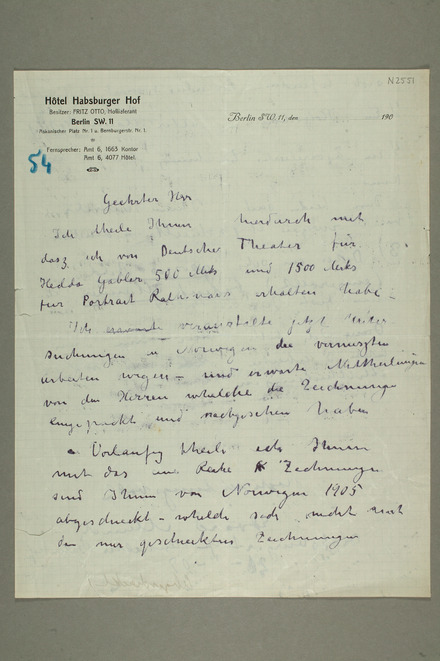 N2551
Hôtel Habsburger Hof
Besitzer: FRITZ OTTO, Hoflieferant
Berlin SW. 11
Askanischer Platz Nr. 1 u. Bernburgerstr. Nr. 1
Fernsprecher: Amt 6, 1663 Kontor
Amt 6, 4077 Hôtel.
Berlin SW. 11, den 190
54
Geehrter Herr
Ich theile Ihnen hierdurch mit
dasz ich von Deutsches Theater für
Hedda Gabler 500 Mks und 1500 Mks
für Portrait Rathenaus erhalten habe –
Ich veranstalte jetzt
suchungen in Norwegen die vermiszten
arbeiten wegen – und erwarte Mittheilungen
von den Herren welche die Zeichnungen
eingepackt und nachgesehen haben
Vorlaufig theile ich Ihnen
mit das eine Reihe Zeichnungen
sind Ihnen von Norwegen 1905
abgeschickt – welche sich nicht mit
den mir geschickten Zeichnungen